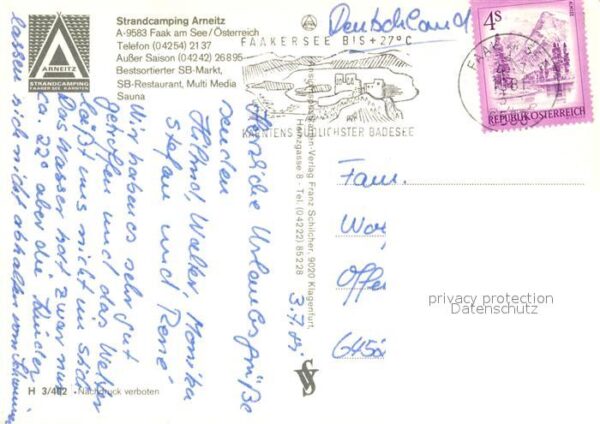 Strandcamping Arneitz
A-9583 Faak am See/Österreich
Telefon (04254) 2137
Außer Saison (04242) 26895
Bestsortierter SB-Markt,
SB-Restaurant, Multi Media
Sauna
ARNEITZ
STRANDCAMPING
FAAKER SEE, KÄRNTEN
Deutschland
FAAKERSEE BIS +27°C
KÄRNTENS SÜDLICHSTER BADESEE
FAAK
4S
REPUBLIK ÖSTERREICH
Herzliche Urlaubsgrüße
senden
Helmut, Walter, Monika
Stefan und René
Wir haben es sehr gut
getroffen und das Wetter
läßt uns nicht im Stich
Das Wasser hat zwar nur
22° aber die Kinder
lassen sich nicht abhalten vom
3.7.
Franz Schilcher, 9020 Klagenfurt,
gasse 8 - Tel. (04222) 85228
Fam.
Offe
645
privacy protection
Datenschutz
H 3/402 • Nachdruck verboten